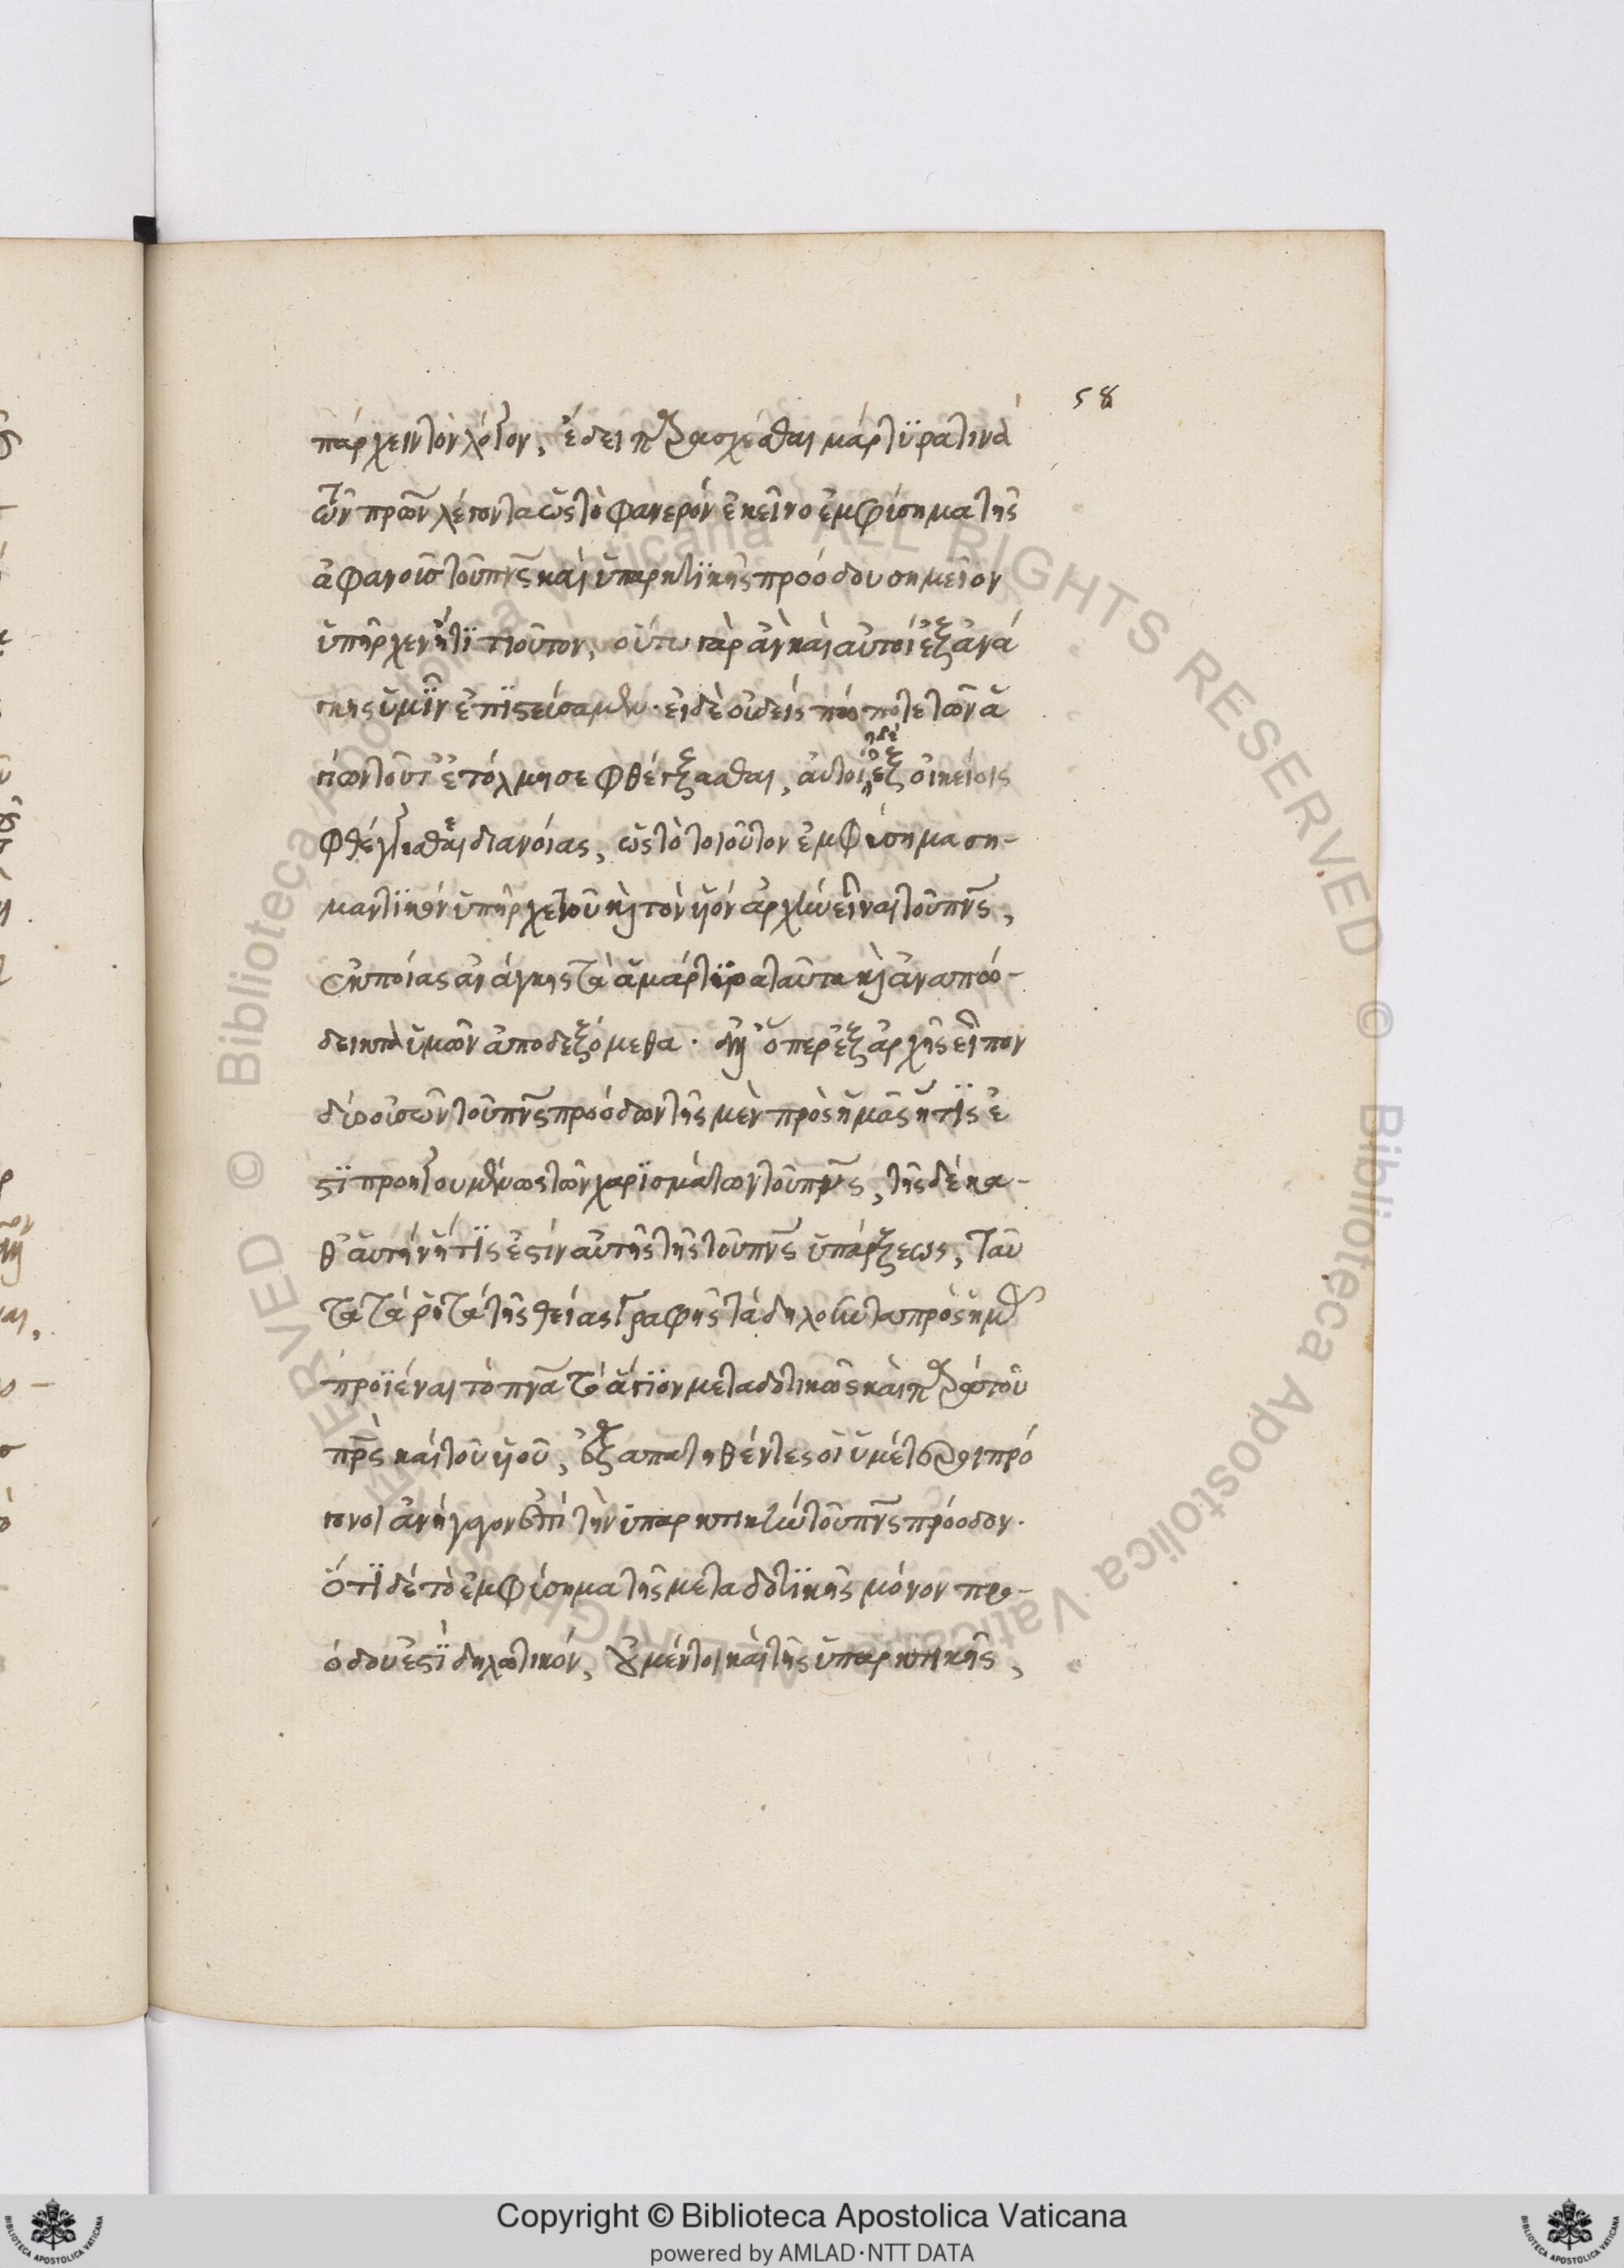 58
πάρχειν τὸν λόγον, ἔδει παρασχέσθαι μάρτϋρα τινὰ
τῶν πρων λέγοντα ὡς τὸ φανερὸν ἐκεῖνο ἐμφύσημα τῆς
ἀφανοῦς τοῦ πνς καὶ ὑπαρκτϊκῆς προόδου σημεῖον
ὑπῆρχεν ἤ τϊ τιοῦτον, οὕτω γὰρ ἂν καὶ αὐτοὶ ἐξ ἀνά
γκης ὑμῖν ἐπϊστεύσαμεν. εἰ δὲ οὐδεὶς πώποτε τῶν ἁ
γίων τοῦτ ἐτόλμησε φθέγξασθαι, αὐτοὶ ἐξ οἰκείας
φθέγγεσθαι διανοίας, ὡς τὸ τοιοῦτον ἐμφύσημα ση-
μαντϊκὸν ὑπῆρχε τοῦ κὶ τὸν υἱὸν ἀρχὴν εἶναι τοῦ πνς,
ἐκ ποίας ἀνάγκης τὰ ἀμάρτϋρα ταῦτα κὶ ἀναπό-
δεικτα ὑμῶν ἀποδεξόμεθα. ἀλλ' ὅπερ ἐξ ἀρχῆς εἶπον
δύο οὐσῶν τοῦ πνς προόδων τῆς μὲν πρὸς ἡμᾶς ἥτϊς ἐ
στϊ προηγουμένως τῶν χαρϊσμάτων τοῦ πνς, τῆς δὲ κα-
θ' αὑτὴν ἥτϊς ἐστὶν αὐτῆς τῆς τοῦ πνς ὑπάρξεως, ταῦ
τα τὰ ῥητὰ τῆς θείας γραφῆς τὰ δηλοῦντα πρὸς ἡμᾶς
προϊέναι τὸ πνα τὸ ἅγϊον μεταδοτικῶς καὶ παρὰ τοῦ
πρς καὶ τοῦ υἱοῦ, ἐξαπατηθέντες οἱ ὑμέτεροι πρό
γονοι ἀνήγαγον ἐπὶ τὴν ὑπαρκτικὴν τοῦ πνς πρόοδον.
ὅτϊ δὲ τὸ ἐμφύσημα τῆς μεταδοτϊκῆς μόνον προ-
όδου ἐστϊ δηλωτικόν, οὐ μέντοι καὶ τῆς ὑπαρκτικῆς,
Copyright © Biblioteca Apostolica Vaticana
powered by AMLAD·NTT DATA